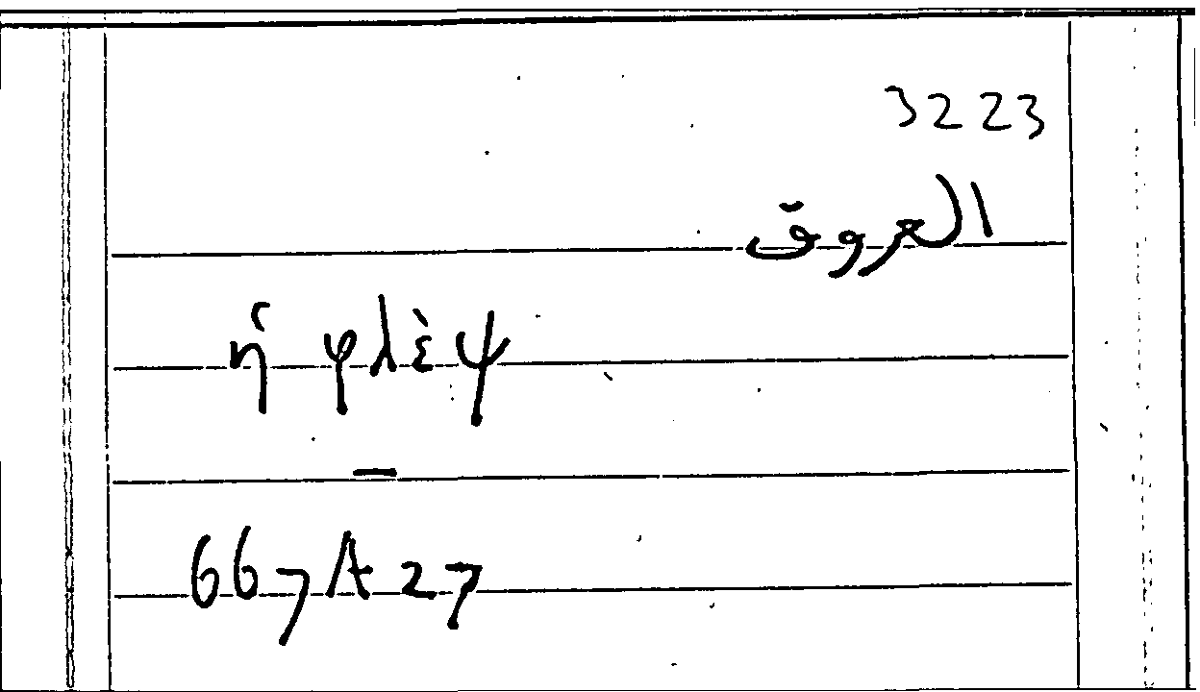 3223
العروق
ἡ φλὲψ
–
667 A 27